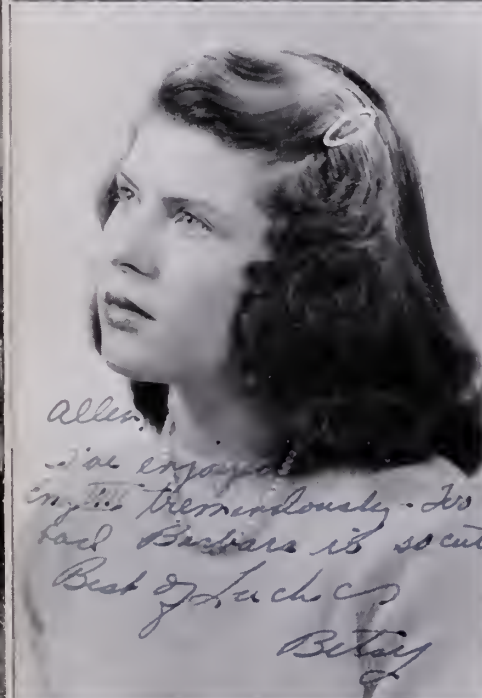 Allen,
I've enjoyed
tremendously - Too
bad Barbara is so cut
Best of Luck
Betsy